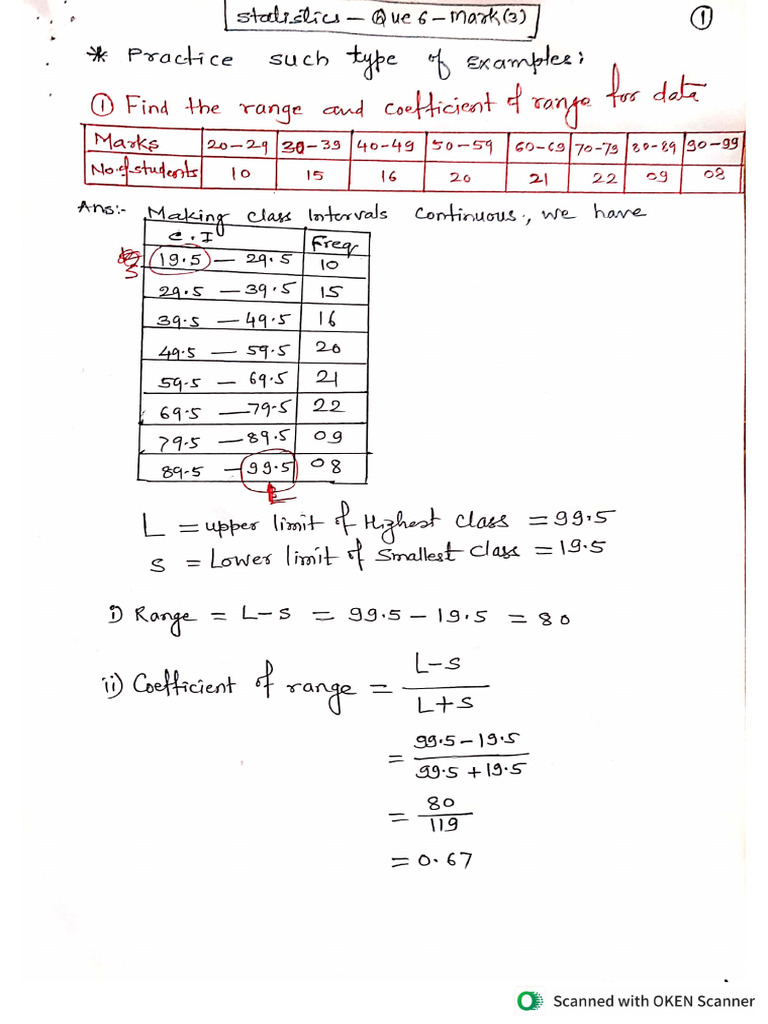 Statistics – Que 6 – Mark(3)
1
* Practice such type of Examples:
① Find the range and coefficient of range for data
Marks 20–29 30–39 40–49 50–59 60–69 70–79 80–89 90–99
No.of students 10 15 16 20 21 22 09 08
Ans:- Making class Intervals Continuous., we have
C.I Freq
S 19.5 – 29.5 10
29.5 – 39.5 15
39.5 – 49.5 16
49.5 – 59.5 20
59.5 – 69.5 21
69.5 – 79.5 22
79.5 – 89.5 09
89.5 – 99.5 08
L
L = upper limit of Highest class = 99.5
S = Lower limit of Smallest class = 19.5
i) Range = L–S = 99.5 – 19.5 = 80
ii) Coefficient of range = L–S
L+S
= 99.5 – 19.5
99.5 + 19.5
= 80
119
= 0.67
Scanned with OKEN Scanner